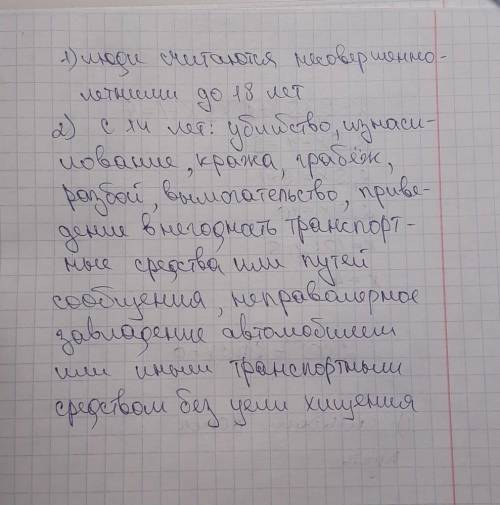 1) люди считаются несовершенно-
летними до 18 лет
2) с 14 лет: убийство, изнаси-
лование, кража, грабёж,
разбой, вымогательство, приве-
дение в негодность транспорт-
ные средства или путей
сообщения, неправомерное
завладение автомобилем
или иным транспортным
средством без цели хищения